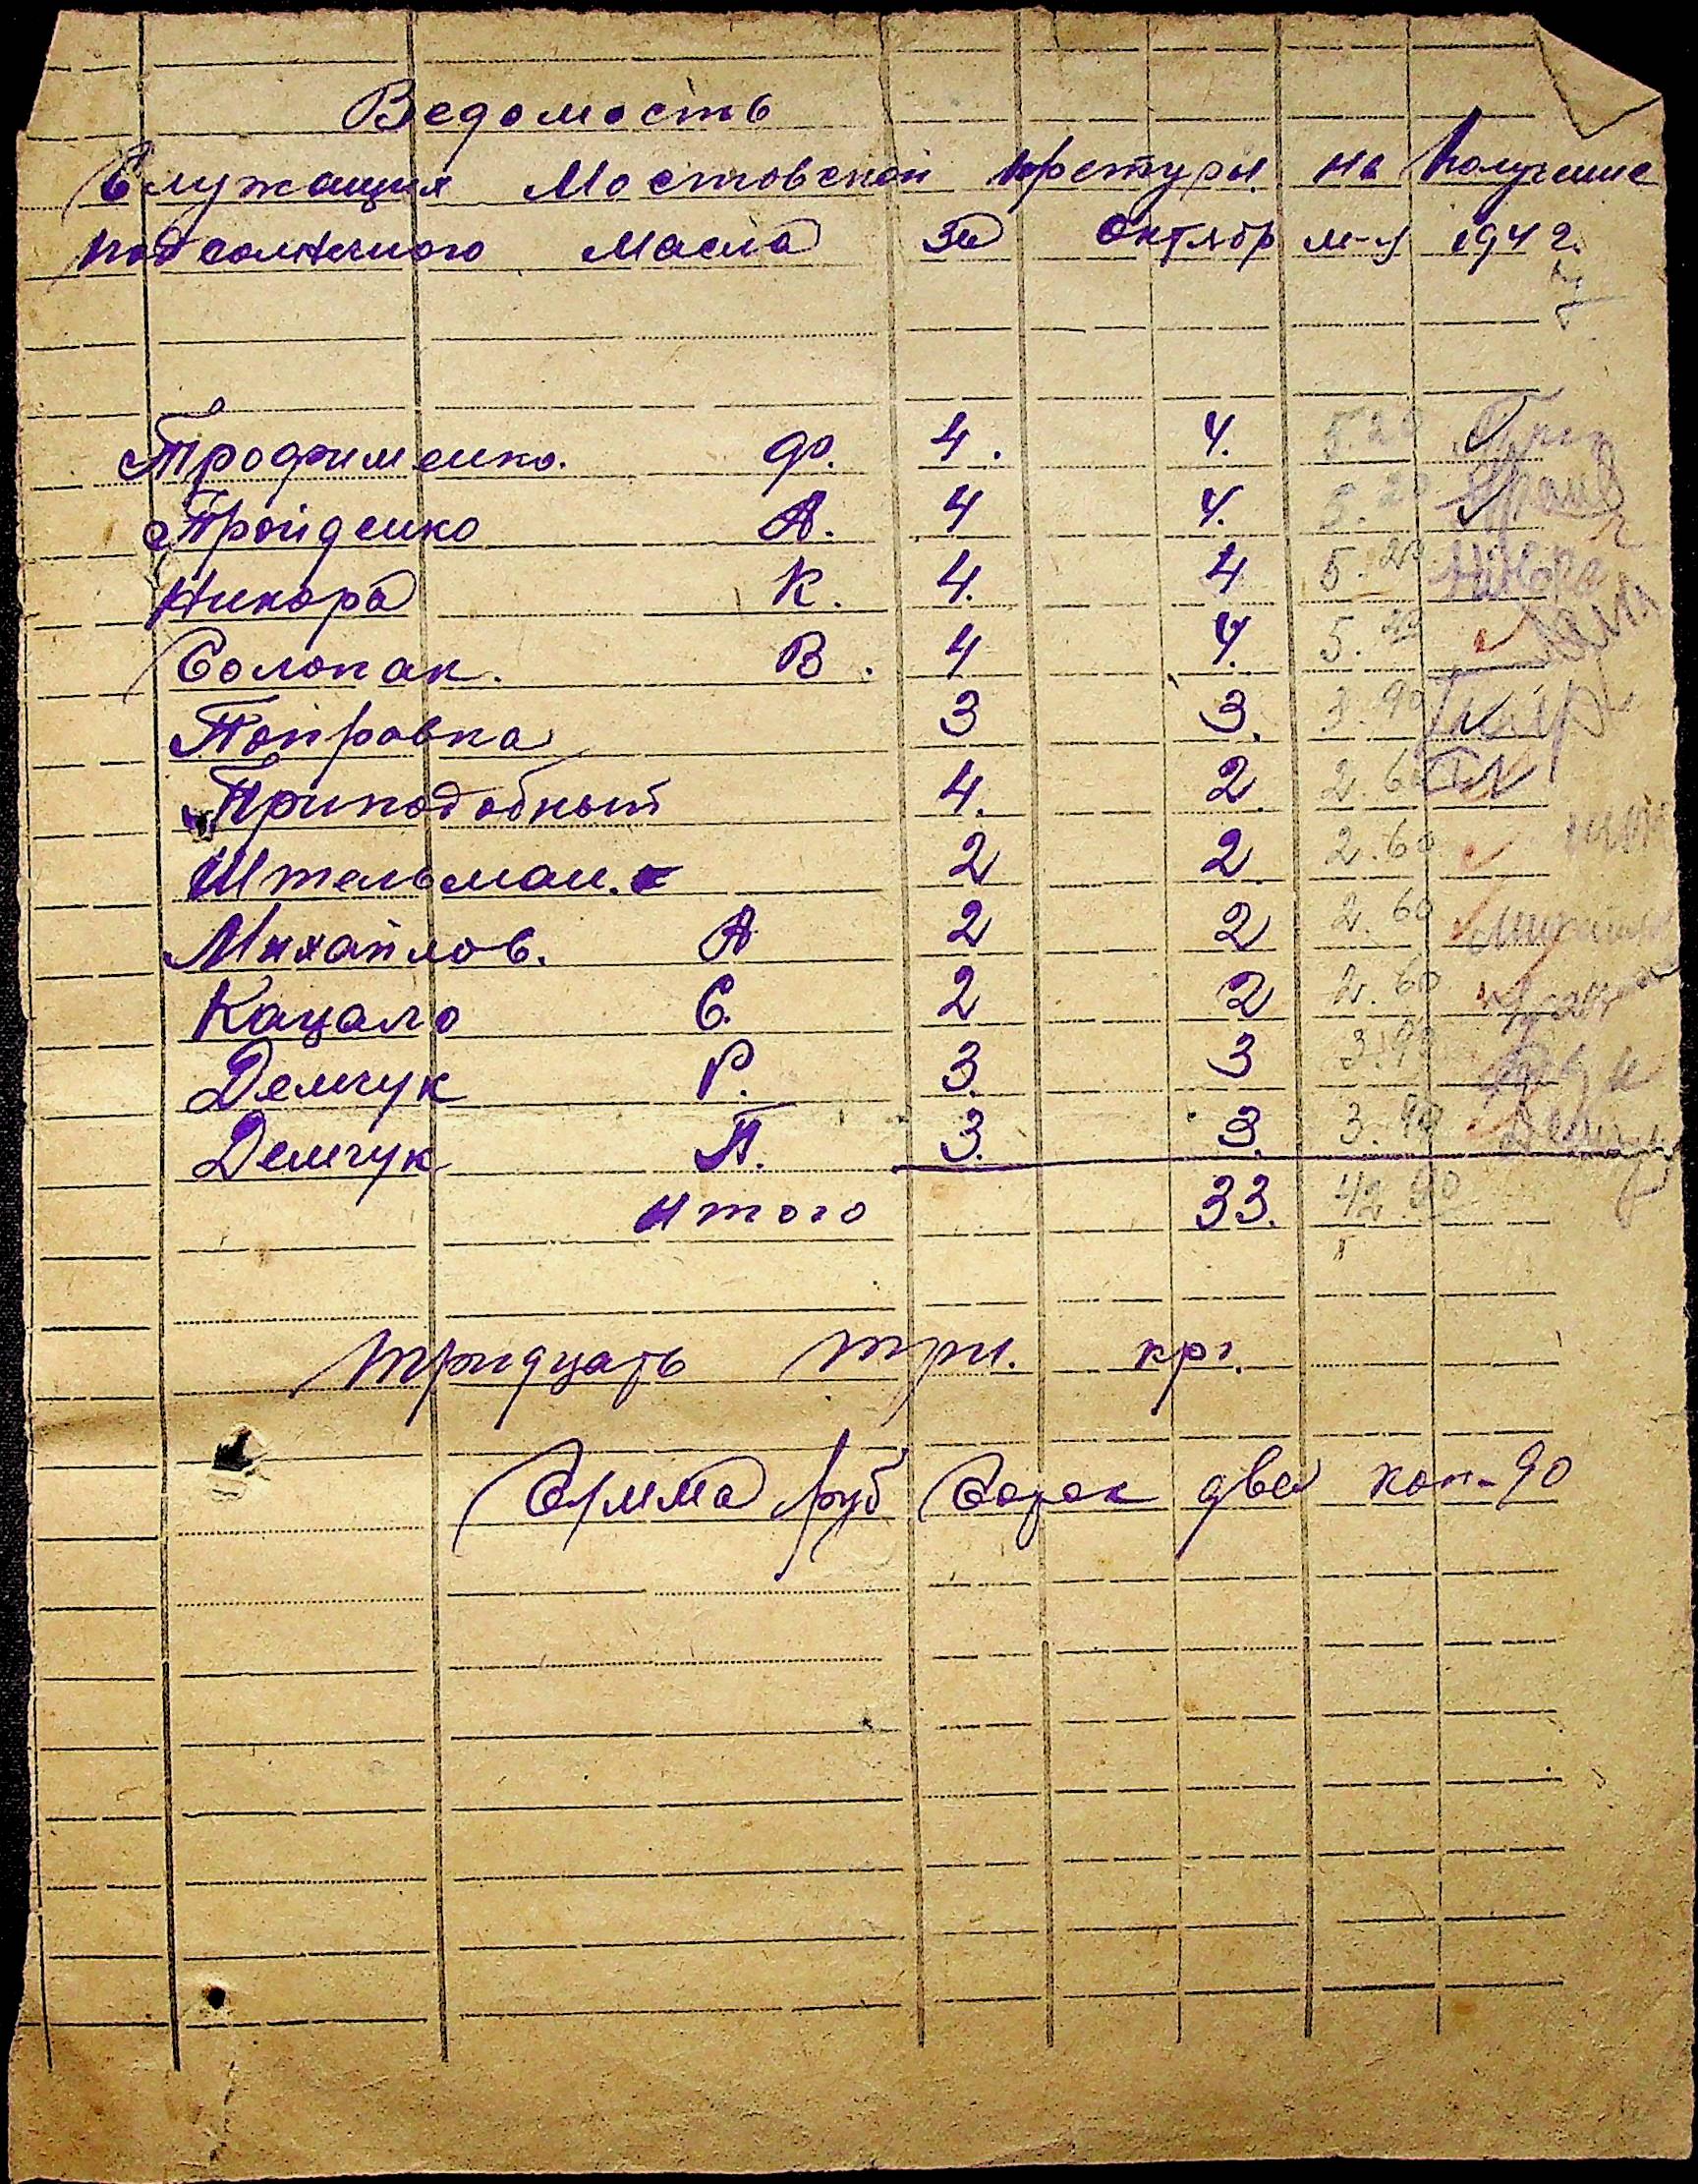 Ведомость
Служащия Мостовской претуры на Получение
подсолнечного масла за Октябр м-ц 1942.
Трофименко. Ф. 4. 4. 5.20
Тройденко А. 4 4. 5.20
Никора К. 4. 4 5.20
Солопак. В. 4 4. 5.20
Попровка 3 3. 3.90
Приподобный 4. 2. 2.60
Штельман. 2 2. 2.60
Михайлов. А 2 2 2.60
Кацало С. 2 2 2.60
Демчук Р. 3. 3 3.90
Демчук П. 3. 3. 3.90
Итого 33. 42 90
тридцать три. крг.
Сумма руб Сорок два коп-90